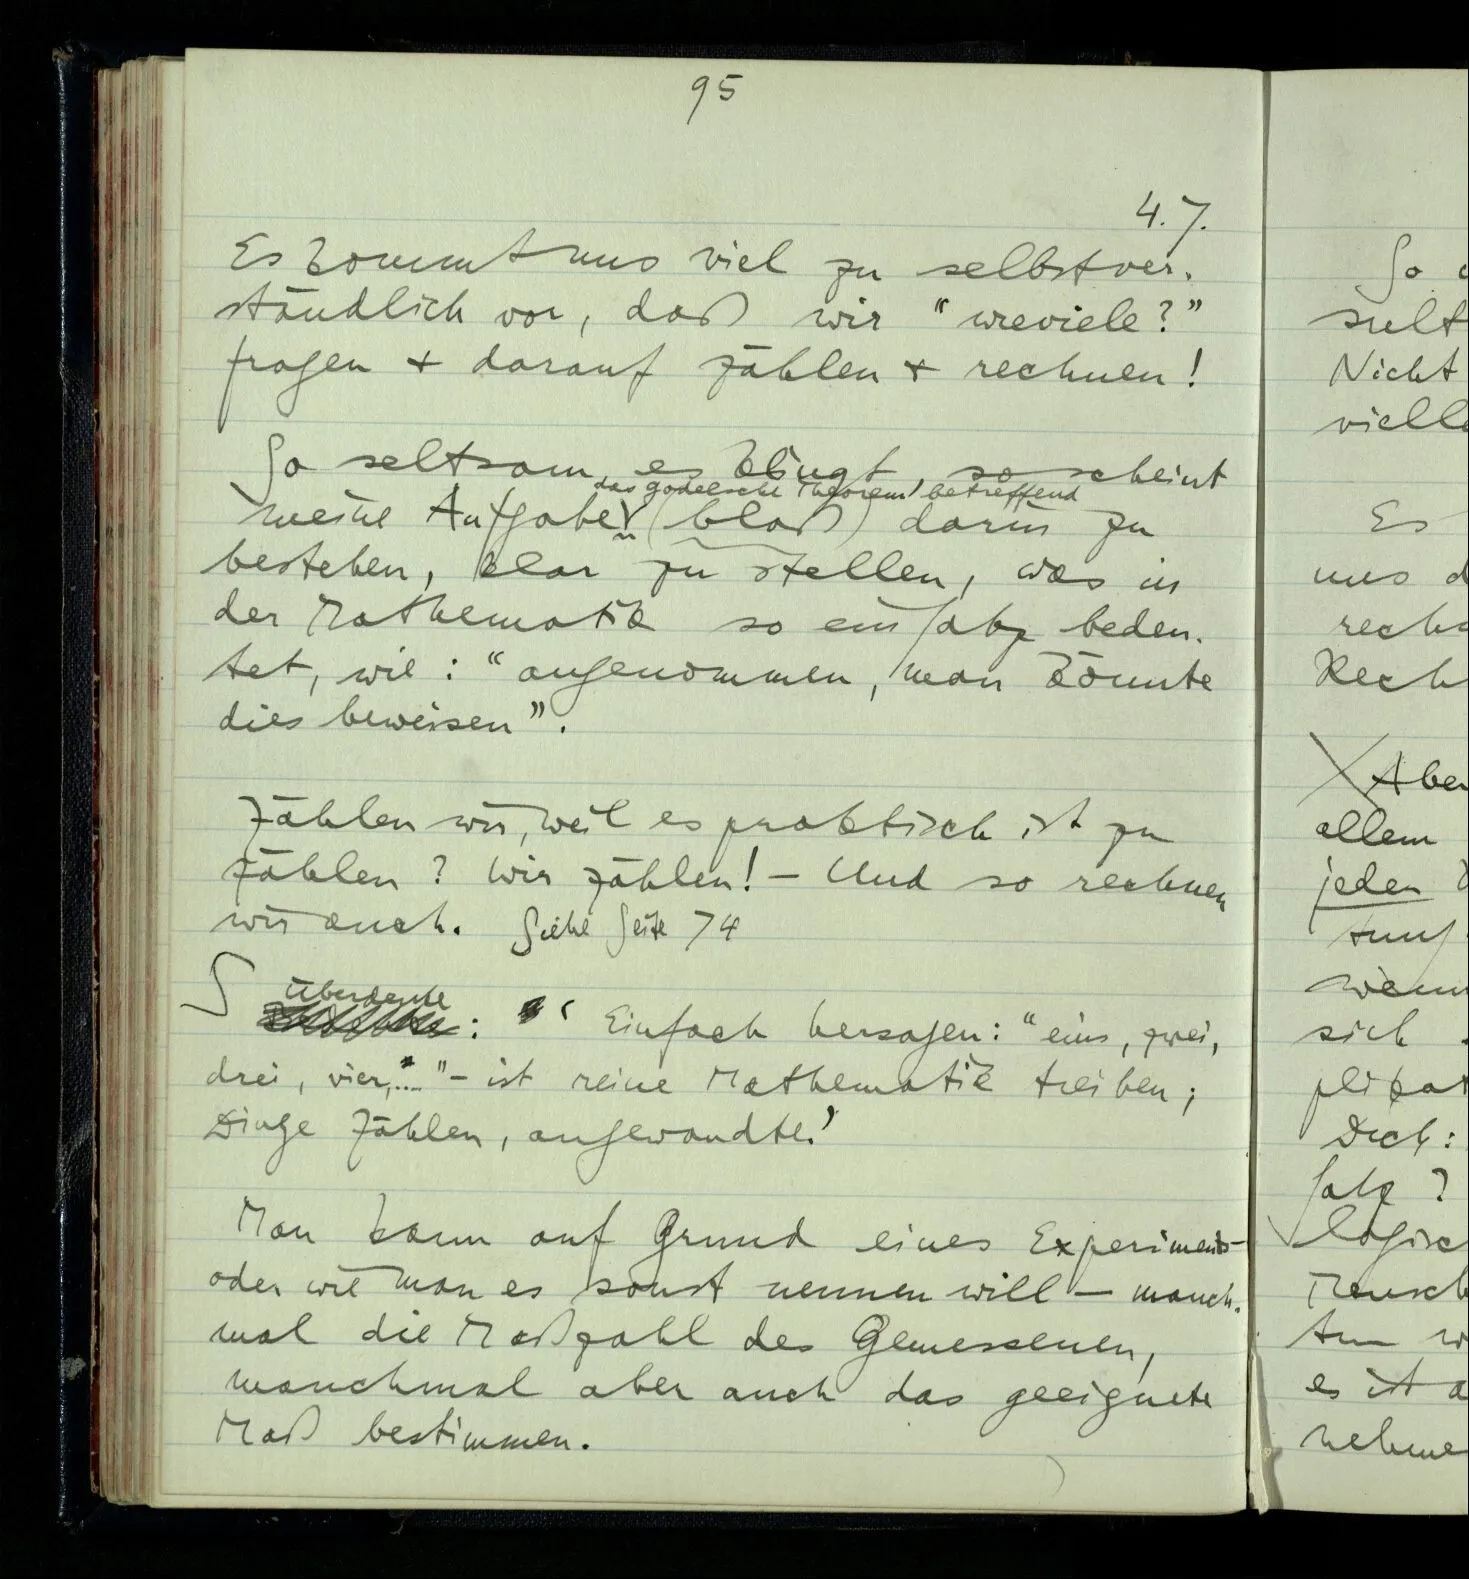 95
4.7.
Es kommt uns viel zu selbstver-
ständlich vor, daß wir "wieviele?"
fragen + darauf zählen + rechnen!
So seltsam es klingt, so scheint
das gödelsche Theorem betreffend
meine Aufgabe (bloß) darin zu
bestehen, klar zu stellen, was in
der Mathematik so ein Satz bedeu-
tet, wie: "angenommen, man könnte
dies beweisen".
Zählen wir, weil es praktisch ist zu
zählen? Wir zählen! – Und so rechnen
wir auch. Siehe Seite 74
S Überdenke
: ‘Einfach hersagen: "eins, zwei,
drei, vier, ..." – ist reine Mathematik treiben;
Dinge zählen, angewandte.’
Man kann auf Grund eines Experiments –
oder wie man es sonst nennen will – manch-
mal die Maßzahl des Gemessenen,
manchmal aber auch das geeignete
Maß bestimmen.
So
Nicht
Es
uns
X Aber
allem
jeden
wenn
sich
Dich:
Satz?
logisc
Mensch
es ist
nehme